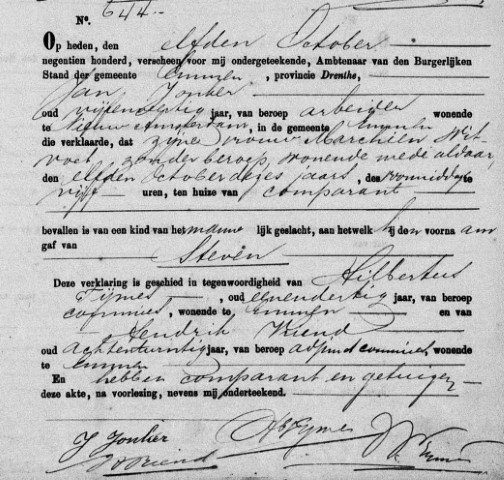 No. 644.
Op heden, den elfden October
negentien honderd, verscheen voor mij ondergeteekende, Ambtenaar van den Burgerlijken
Stand der gemeente Emmen, provincie Drenthe,
Jan Jonker
oud jaar, van beroep arbeider wonende
te Nieuw Amsterdam, in de gemeente Emmen
die verklaarde, dat zijne vrouw Marchien Wit-
voet, zonder beroep, wonende mede aldaar,
den elfden October dezes jaars, des voormiddags te
vijf uren, ten huize van comparant
bevallen is van een kind van het mannelijk geslacht, aan hetwelk hij den voornaam
gaf van Steven
Deze verklaring is geschied in tegenwoordigheid van Hilbertus
Tijmes, oud eenendertig jaar, van beroep
commies, wonende te Emmen en van
Hendrik Vriend
oud achtentwintig jaar, van beroep adjunct commies, wonende
te Emmen
En hebben comparant en getuigen
deze akte, na voorlezing, nevens mij onderteekend.
J Jonker
H Tijmes
H Vriend